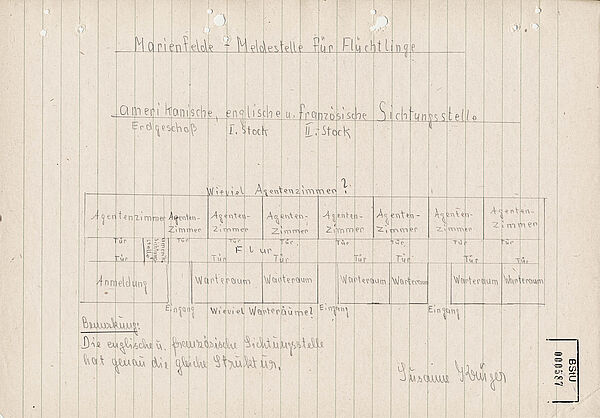 Marienfelde - Meldestelle für Flüchtlinge
amerikanische, englische u. französische Sichtungsstelle
Erdgeschoß I. Stock II. Stock
Wieviel Agentenzimmer?
Agentenzimmer Agenten-Zimmer Agenten-Zimmer Agenten-Zimmer Agenten-Zimmer Agenten-Zimmer Agenten-Zimmer Agenten-Zimmer
Tür Tür Tür Tür Tür Tür Tür Tür
Flur
Tür Tür Tür Tür Tür Tür Tür
Anmeldung Warteraum Warteraum Warteraum Warteraum Warteraum Warteraum
Eingang Wieviel Warteräume? Eingang Eingang
Bemerkung:
Die englische u. französische Sichtungsstelle
hat genau die gleiche Struktur.
Susanne
BStU
000587